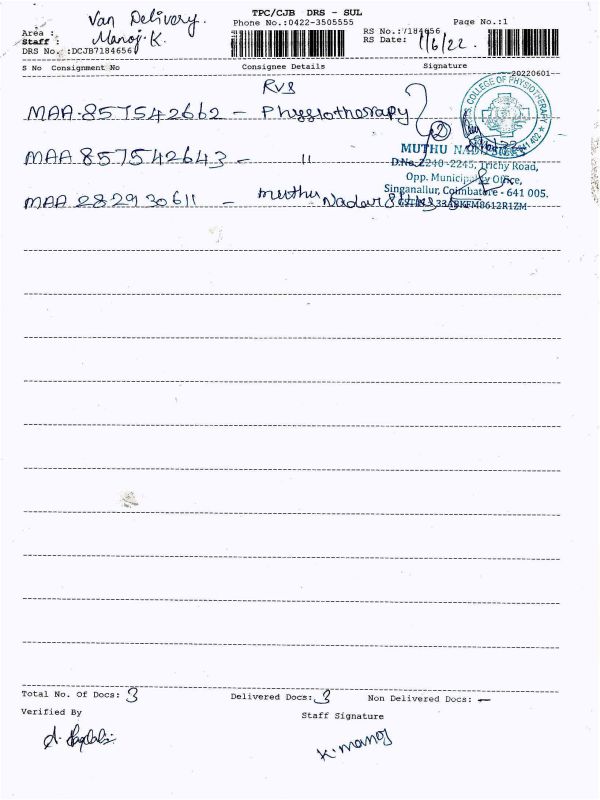 TPC/CJB DRS - SUL
Phone No.:0422-3505555
Page No.:1
Area : Van Delivery.
Staff : Manoj.K.
DRS No. :DCJB7184656
RS No.:7184656
RS Date: 1/6/22.
S No Consignment No Consignee Details Signature
20220601-
RVS
MAA.857542662 - Physiotherapy
MAA 857542643 - "
MAA 282930611 - muthu Nadar & Sons
COLLEGE OF PHYSIOTHERAPY
MUTHU
D.No. 2240 -2245, Trichy Road,
Opp. Municipality Office,
Singanallur, Coimbatore - 641 005.
Total No. Of Docs: 3
Delivered Docs: 3
Non Delivered Docs: —
Verified By
Staff Signature
K. manoj